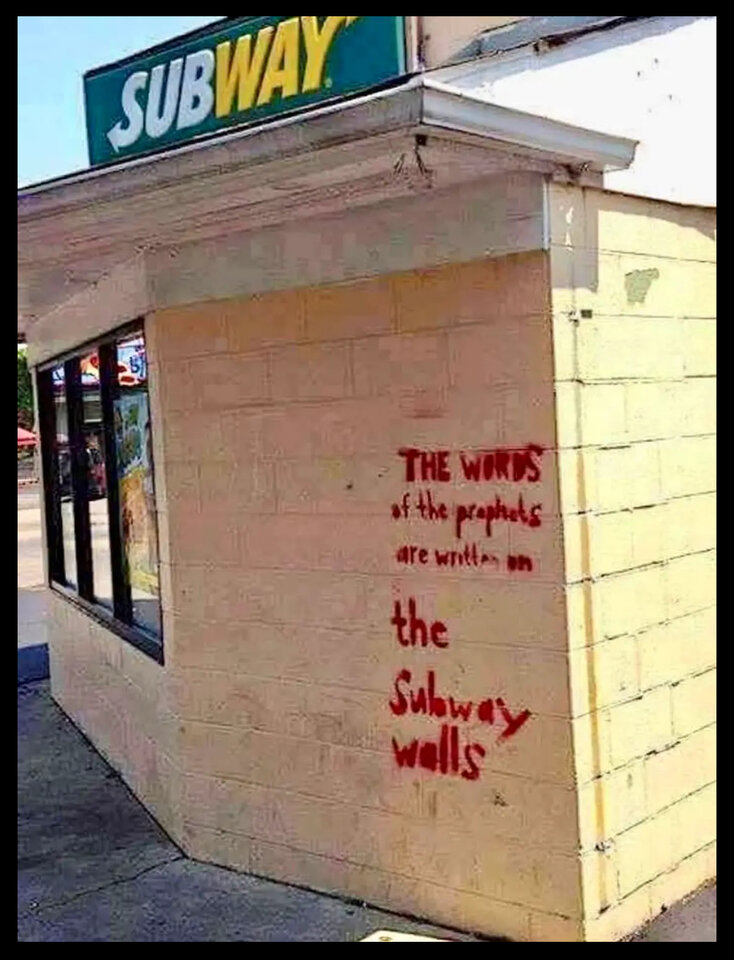 SUBWAY
THE WORDS
of the prophets
are written on
the
Subway
walls